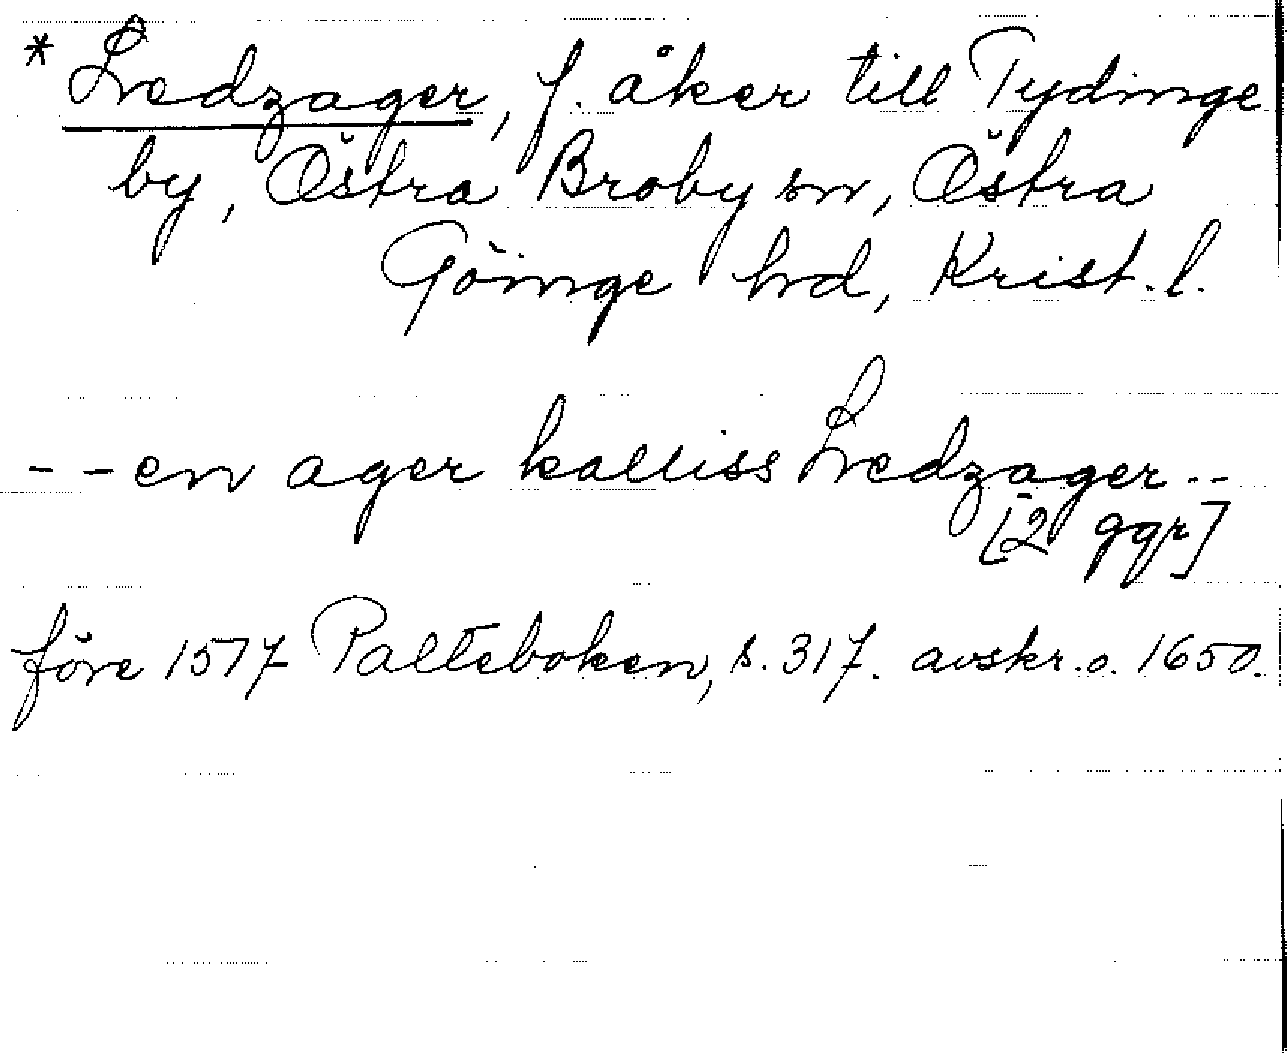 * Lredzager, f. åker till Tydinge
by, Östra Broby sn, Östra
Göinge hrd, Krist. l.
- - en ager kalliss Lredzager - -
[2 ggr]
före 1577 Palteboken, s. 317. avskr. o. 1650.